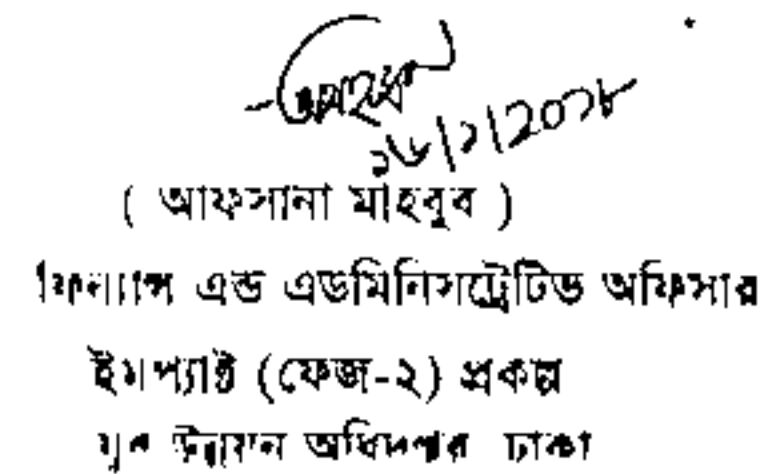 ১৬/১/২০১৮
( আফসানা মাহবুব )
ফিন্যান্স এন্ড এডমিনিসট্রেটিভ অফিসার
ইমপ্যাক্ট (ফেজ-২) প্রকল্প
যুব উন্নয়ন অধিদপ্তর ঢাকা